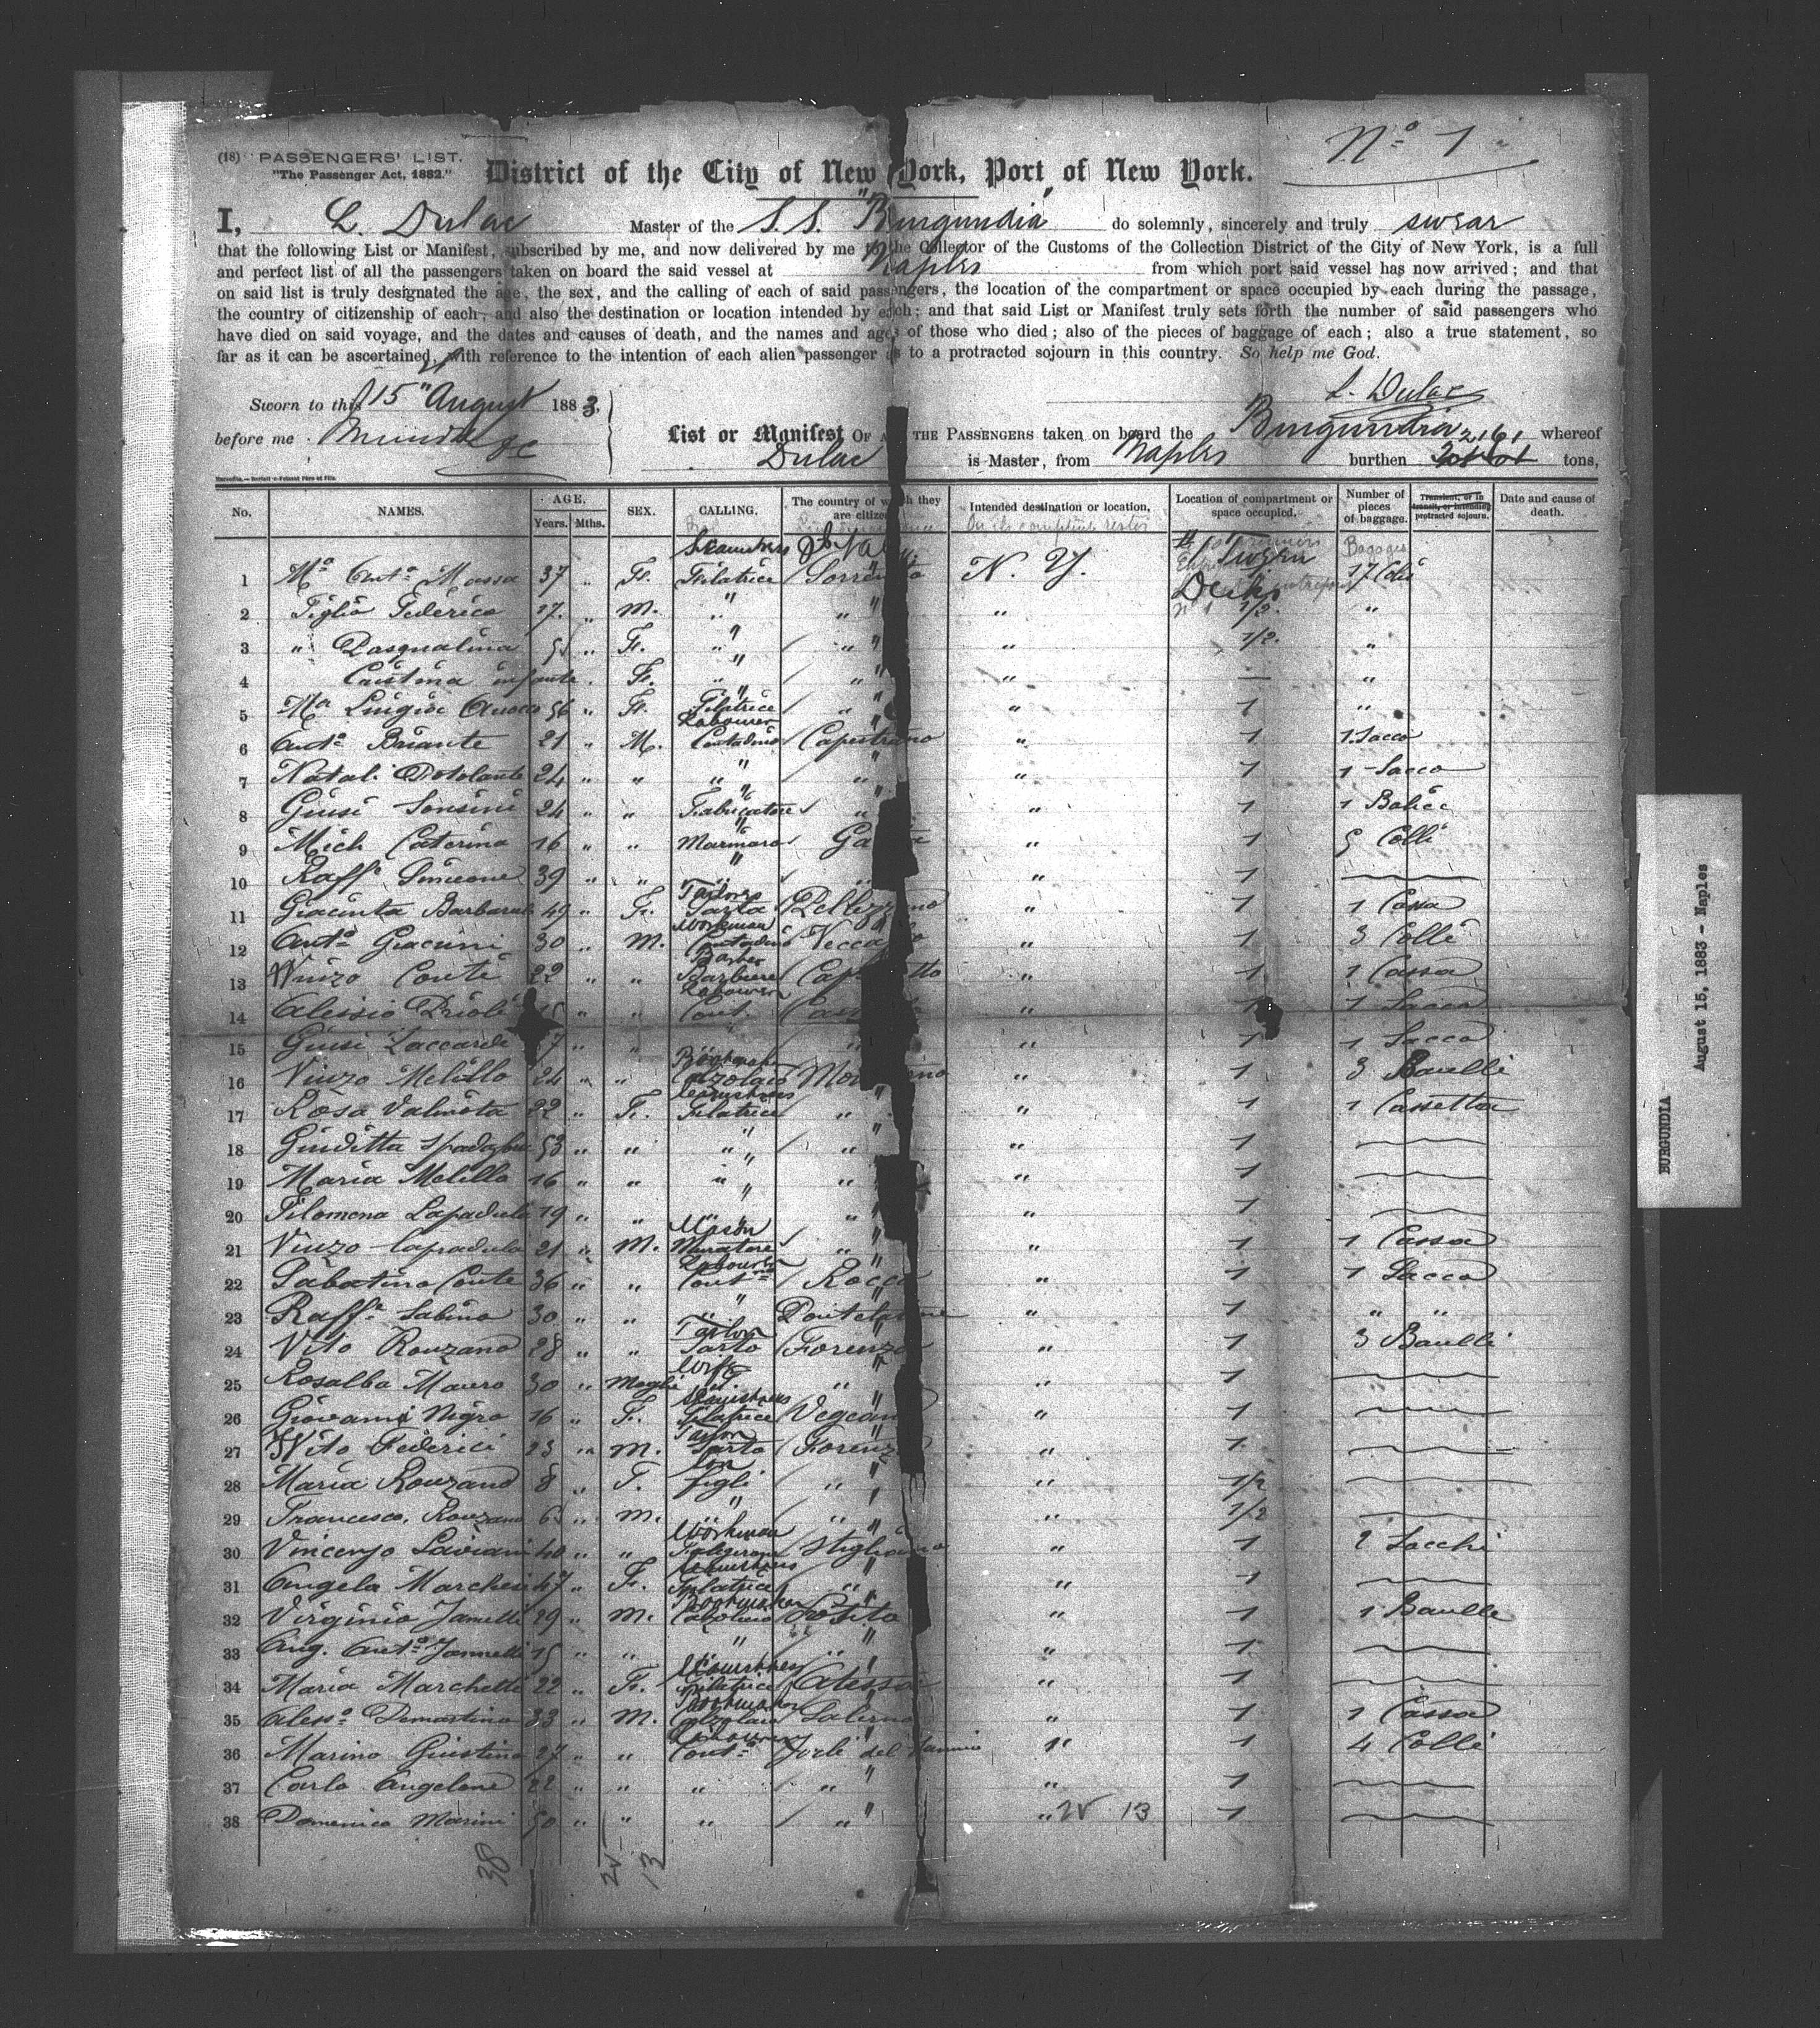 Nº 1
(18) PASSENGERS' LIST.
"The Passenger Act, 1882."
District of the City of New York, Port of New York.
I, L. Dulac Master of the S.S. "Burgundia" do solemnly, sincerely and truly swear
that the following List or Manifest, subscribed by me, and now delivered by me to the Collector of the Customs of the Collection District of the City of New York, is a full
and perfect list of all the passengers taken on board the said vessel at Naples from which port said vessel has now arrived; and that
on said list is truly designated the age, the sex, and the calling of each of said passengers, the location of the compartment or space occupied by each during the passage,
the country of citizenship of each, and also the destination or location intended by each; and that said List or Manifest truly sets forth the number of said passengers who
have died on said voyage, and the dates and causes of death, and the names and ages of those who died; also of the pieces of baggage of each; also a true statement, so
far as it can be ascertained, with reference to the intention of each alien passenger as to a protracted sojourn in this country. So help me God.
L. Dulac
Sworn to this 15" August 1883,
before me
List or Manifest OF ALL THE PASSENGERS taken on board the Burgundia whereof
Dulac is Master, from Naples burthen 2161 tons,
No. NAMES. AGE. Years. Mths. SEX. CALLING. The country of which they are citizens Intended destination or location, Location of compartment or space occupied, Number of pieces of baggage. Transient, or in transit, or intending protracted sojourn. Date and cause of death.
1 Mª Antª Massa 37 " F. Filatrice Sorrento N. Y. 17 Colli
2 Figlio Federico 17. " M. " " " 1/2. "
3 " Pasqualina " F. " " " 1/2. "
4 Cristina infante. F. " " " — "
5 Mª Luigia 56 " F. Filatrice " " 1 "
6 Antº Briante 21 " M. Labourer Contadino Capestrano " 1 1 Sacco
7 Natal. 24 " " " " " 1 1 Sacco
8 Giusi Sonsini 24 " " Fabricatore " " 1 1
9 Mich Caterina 16 " " Marinaro " 1 5 Colli
10 Raffº Simeone 39 " " " " " 1
11 Giacinta 49 " F. Tailor Sarta " 1 1 Cassa
12 Antº Giacuini 30 " M. Workman " 1 3 Colli
13 Vinzo Conte 22 " " Barber Barbiere " 1 1 Cassa
14 Alessio " " Labourer Cont. " 1 1 Sacco
15 Giusi Zaccardi 7 " " " " 1 1 Sacco
16 Vinzo Melillo 24 " " Calzolaio " 1 3 Baulli
17 Rosa Valinota 22 " F. Filatrice " " 1 1 Cassetta
18 Giuditta 53 " " " " " 1
19 Maria Melillo 16 " " " " " 1
20 Filomena Lapadula 19 " " " " " 1
21 Vinzo Lapadula 21 " M. Mason Muratore " " 1 1 Cassa
22 Sabatino Conte 36 " " Labourer Contº Rocca " 1 1 Sacco
23 Raffº Sabino 30 " " " " 1 " "
24 Vito Rouzano 28 " " Tailor Sarto Forenza " 1 3 Baulli
25 Rosalba Mauro 30 " Moglie Wife " " 1
26 Giovanni Nigro 16 " F. Filatrice " 1
27 Vito Federici 23 " M. Tailor Sarto Forenza " 1
28 Maria Rouzano 8 " F. figli " " 1/2
29 Francesco Rouzano " M. " " " 1/2
30 Vincenzo Laviani 40 " " Workman Stigliano " 1 2 Sacchi
31 Angela Marchesi 47 " F. Filatrice " " 1
32 Virginio Jannelli 29 " M. Bootmaker Calzolaio " 1 1 Baulle
33 Ang. Antº Jannelli 15 " " " " " 1
34 Maria Marchetti 22 " F. Filatrice Atessa " 1
35 Alessº Demartino 33 " M. Bootmaker Calzolaio Salerno " 1 1 Cassa
36 Marino Giustino 27 " " Labourer Contº " 1 4 Colli
37 Carlo Angelone 22 " " " " " 1
38 Domenico Marini 50 " " " " " 1
25 13
38 25 13
BURGUNDIA
August 15, 1883 - Naples